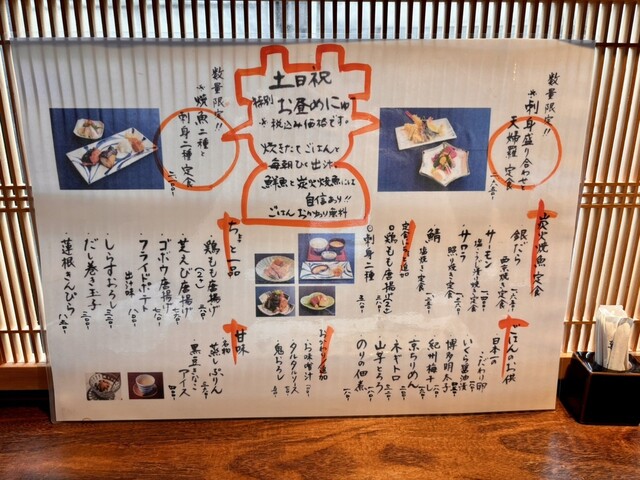 数量限定!!
刺身盛り合わせ
天婦羅 定食
土日祝
特別 お昼めにゅ
※税込み価格です。
炊きたてごはんと
毎朝ひく出汁
鮮魚と炭火焼魚には
自信あり!!
ごはん おかわり無料
数量限定!!
焼魚二種と
刺身二種 定食
炭火焼魚 定食
銀だら
西京焼き定食
サーモン
サワラ
照り焼き定食
鯖
塩焼き定食
定食にもう一品
鶏もも唐揚げ(2こ)
刺身二種
ちょと一品
鶏もも唐揚
芝えび唐揚げ
ゴボウ唐揚げ
フライドポテト
出汁味
だし巻き玉子
しらすおろし
蓮根きんぴら
ごはんのお供
日本一の
こだわり卵
いくら醤油漬
博多明太子
紀州梅干し
京ちりめん
ネギトロ
山芋とろろ
のりの佃煮
おかわり・追加
お味噌汁
タルタルソース
鬼おろし
甘味
名物
蒸しぷりん
黒豆きなこ
アイス